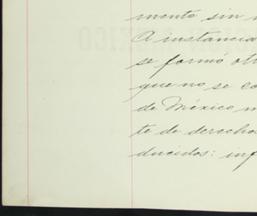 mento sin
A instancia
se formó otr
que no se co
de México m
te de derecho
ducidos: inf